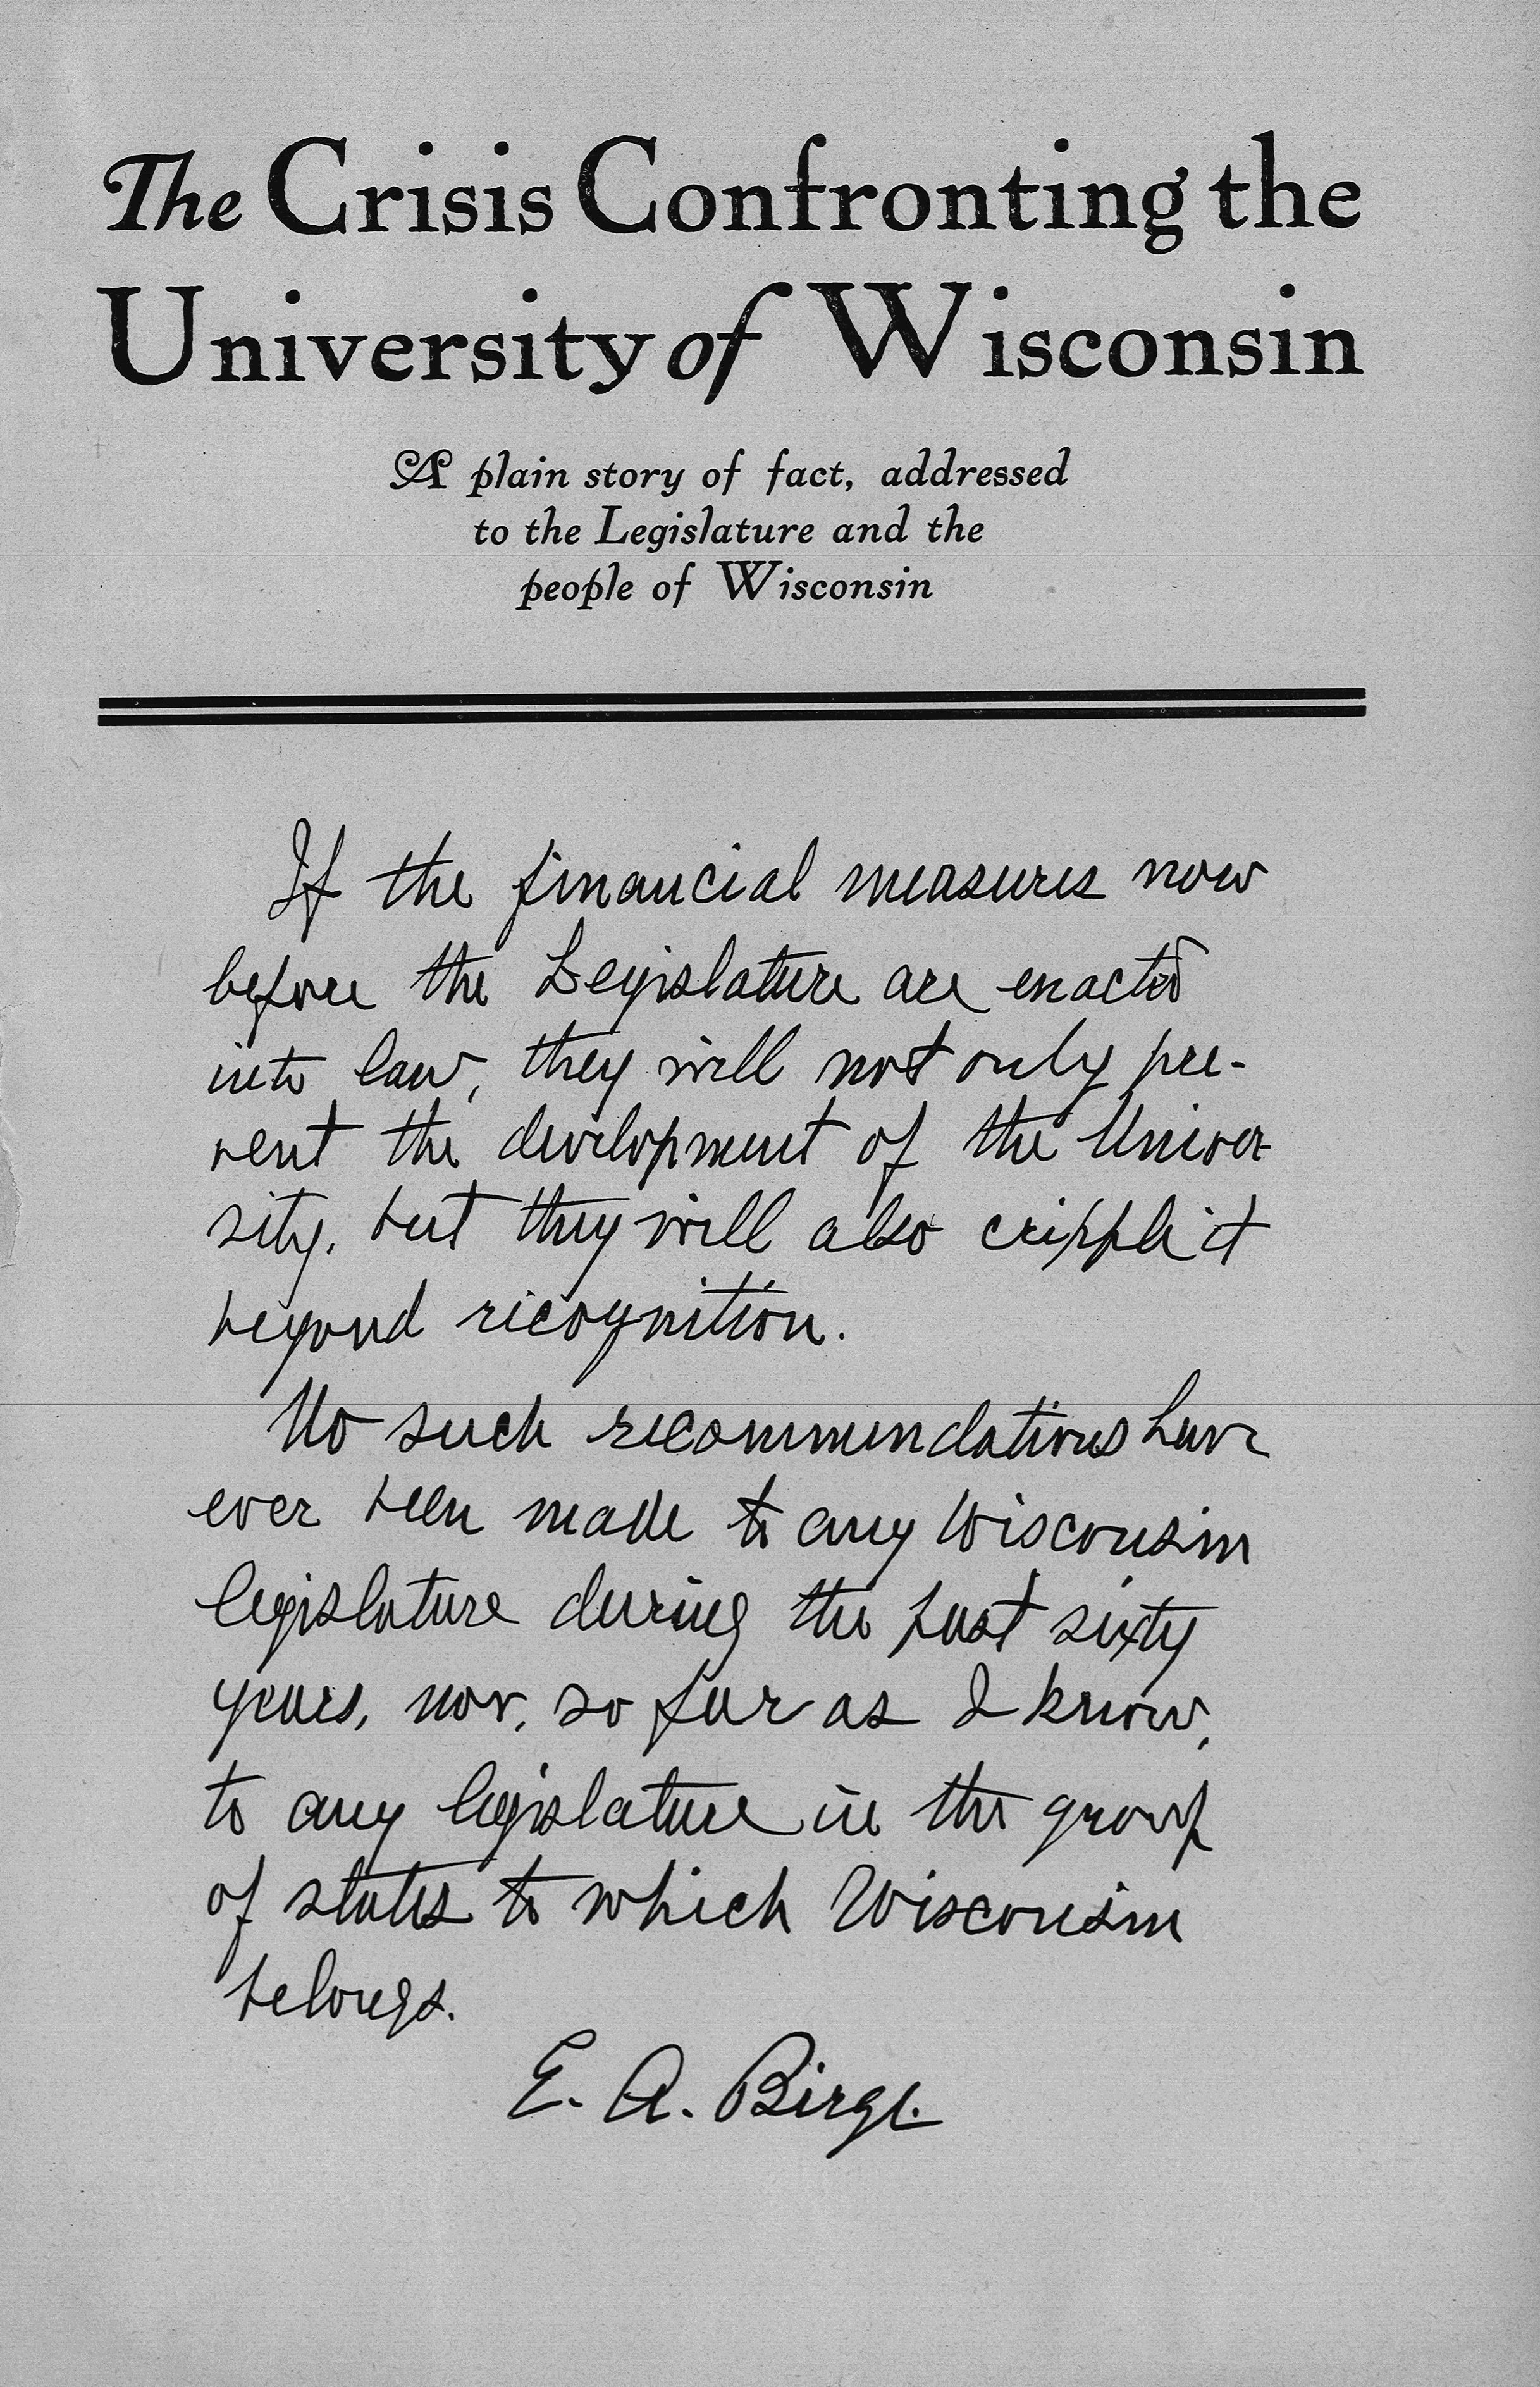 The Crisis Confronting the
University of Wisconsin
A plain story of fact, addressed
to the Legislature and the
people of Wisconsin
If the financial measures now
before the Legislature are enacted
into law, they will not only pre-
vent the development of the Univer-
sity, but they will also cripple it
beyond recognition.
No such recommendations have
ever been made to any Wisconsin
legislature during the past sixty
years, nor, so far as I know,
to any legislature in the group
of states to which Wisconsin
belongs.
E. A. Birge.